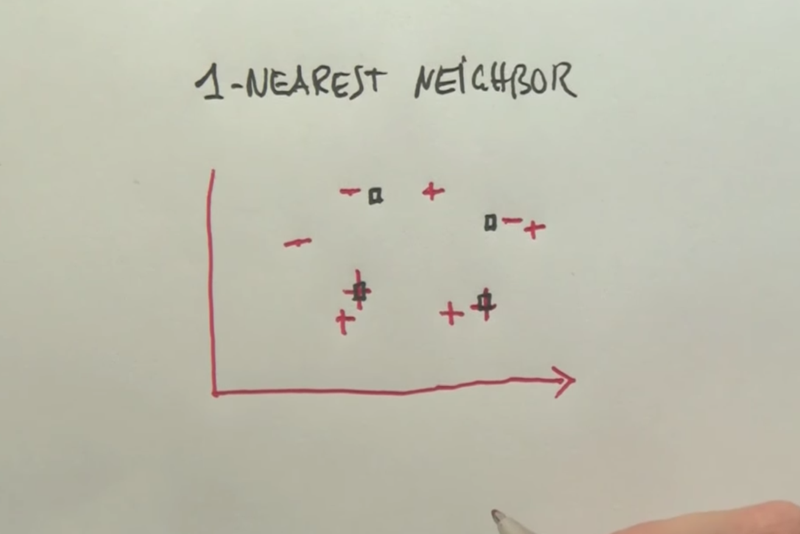 1-NEAREST NEIGHBOR
- +
- +
-
+
+ + +